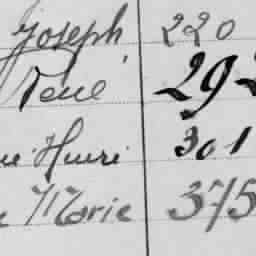 Joseph 220
René 292
Henri 301
Marie 375